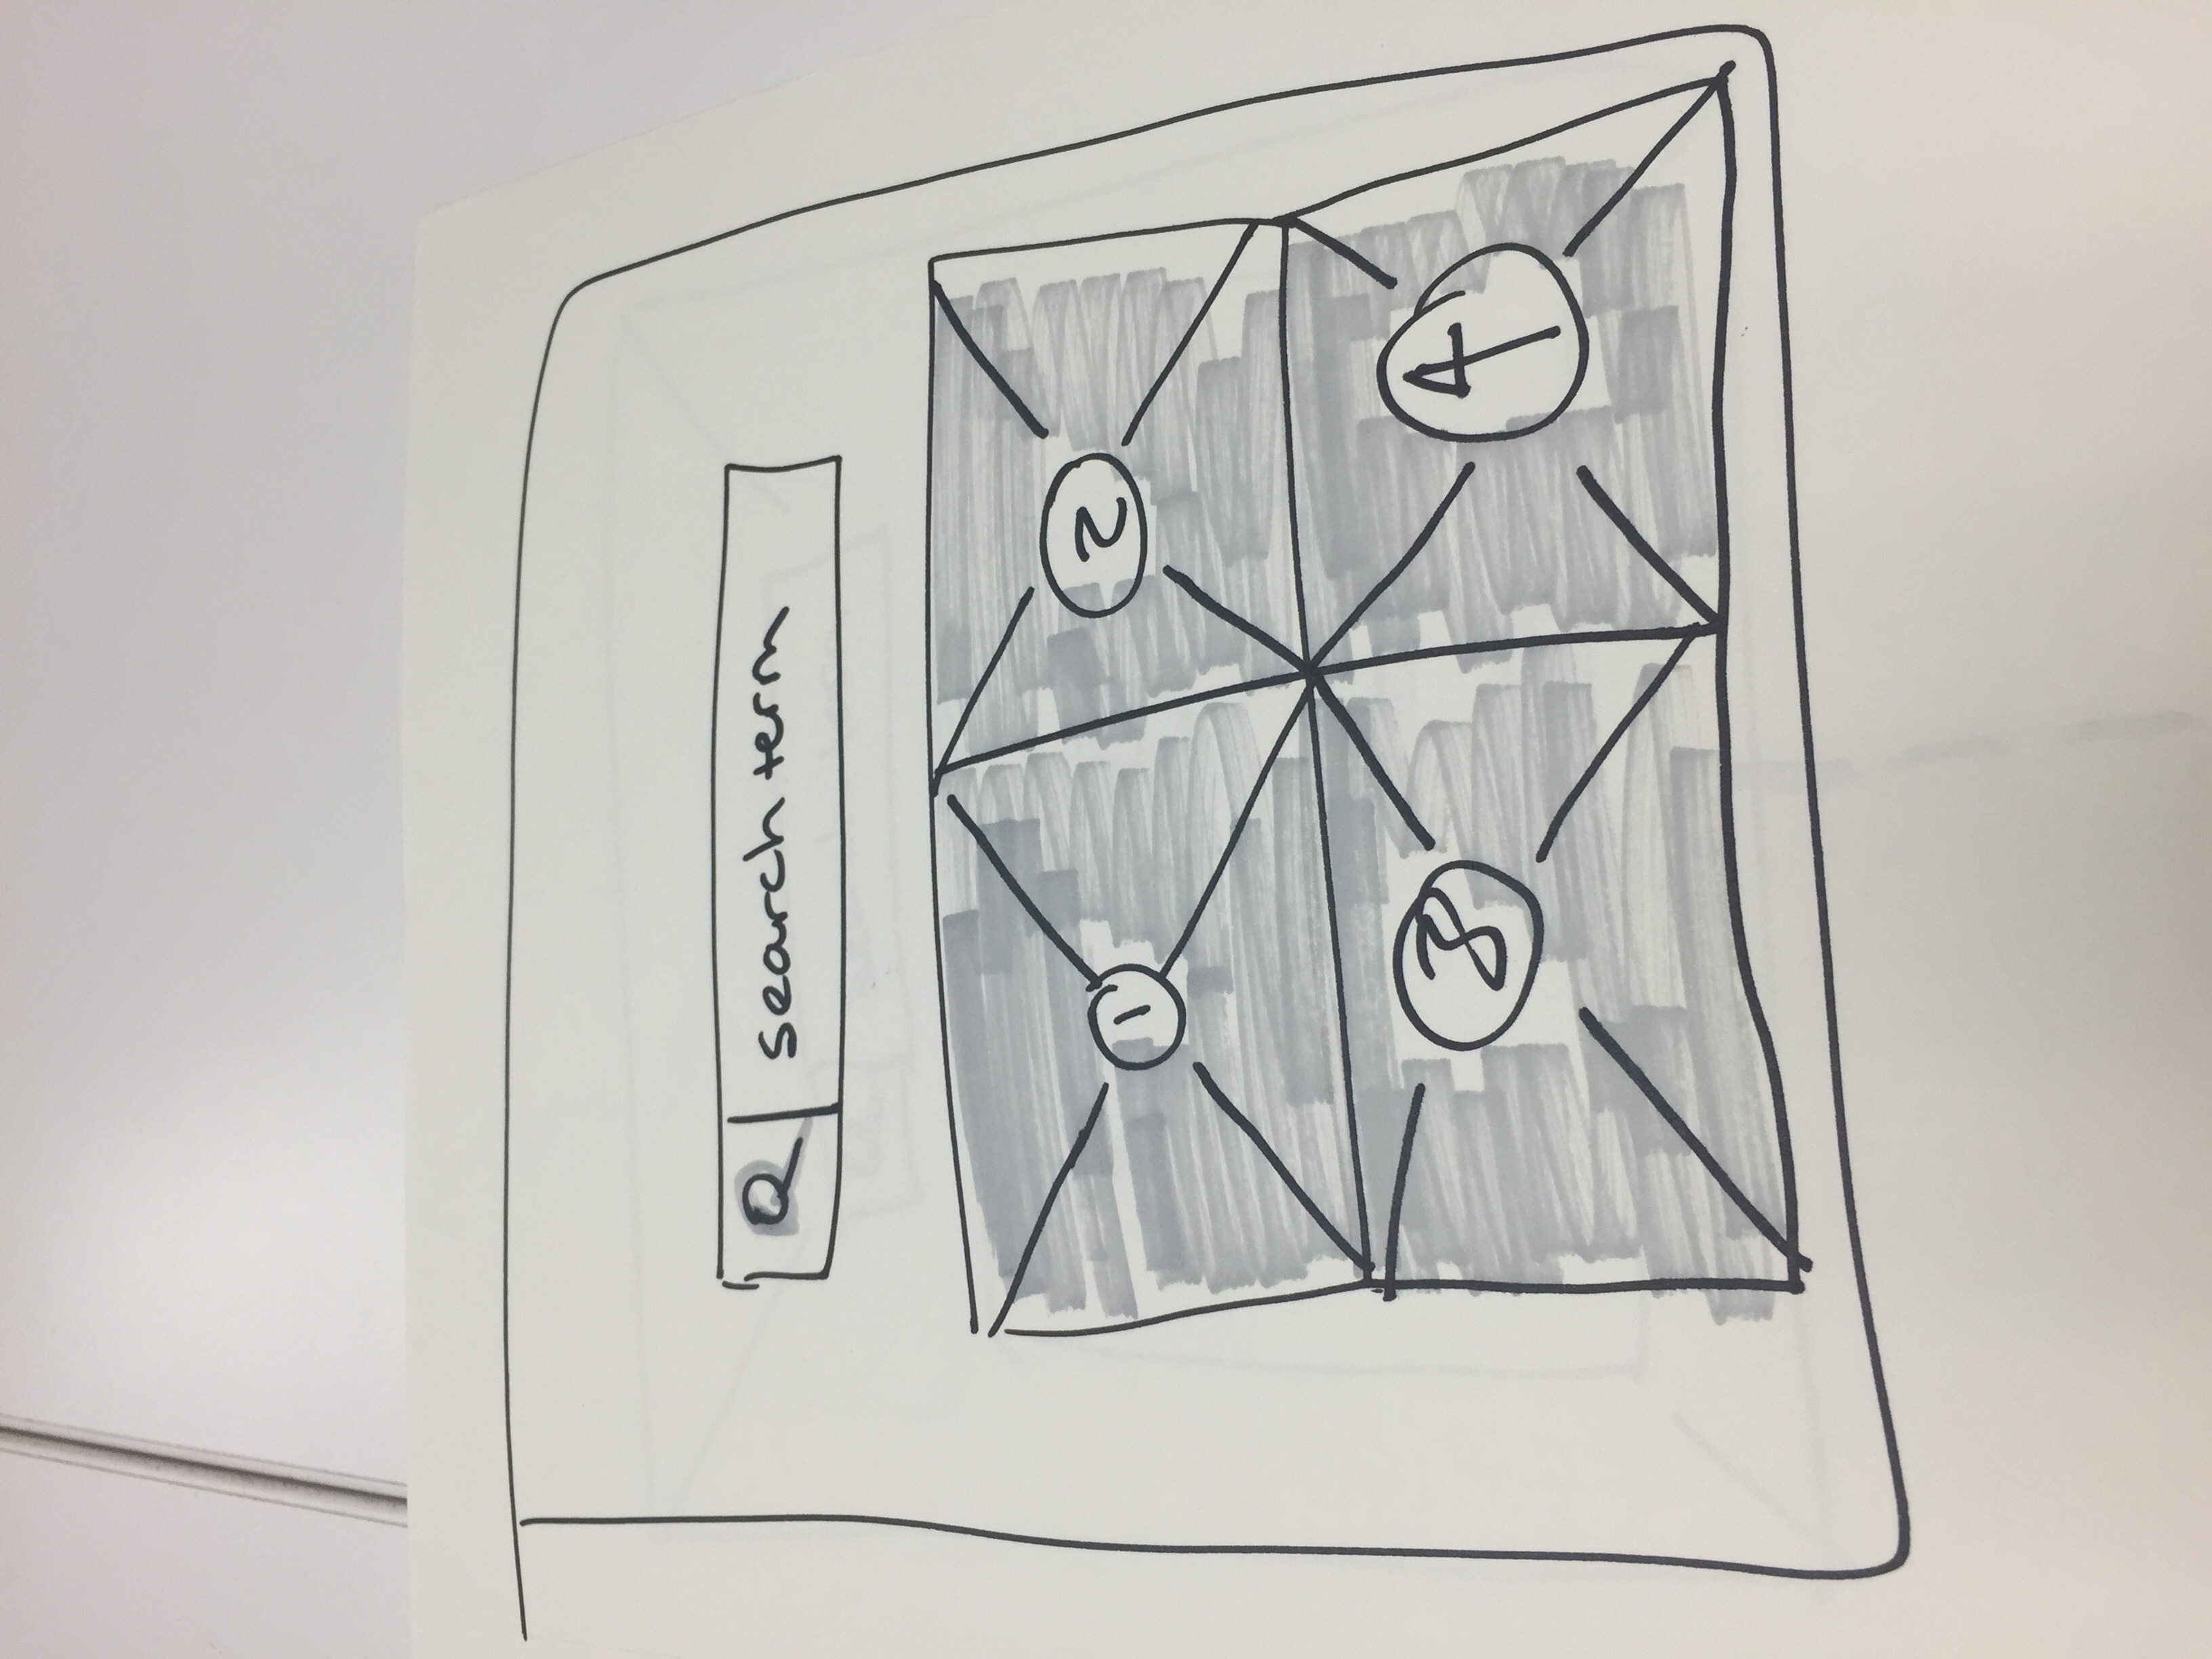 search term
1
2
3
4